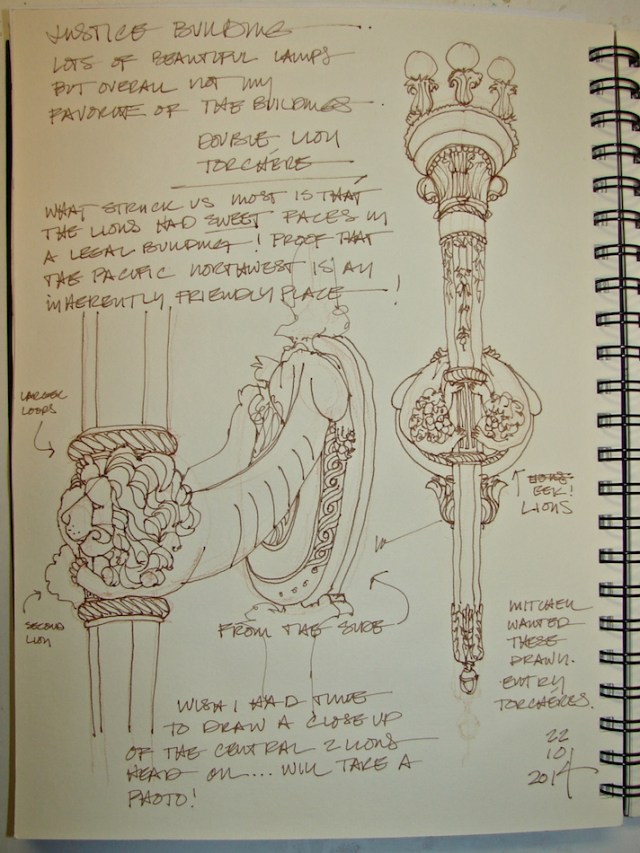 JUSTICE BUILDING
LOTS OF BEAUTIFUL LAMPS
BUT OVERALL NOT MY
FAVORITE OF THE BUILDINGS.
DOUBLE LION
TORCHÈRE
WHAT STRUCK US MOST IS THAT
THE LIONS HAD SWEET FACES IN
A LEGAL BUILDING! PROOF THAT
THE PACIFIC NORTHWEST IS AN
INHERENTLY FRIENDLY PLACE!
LARGER
LOOPS
SECOND
LION
FROM THE SIDE
EEK!
LIONS
MITCHELL
WANTED
THESE
DRAWN.
ENTRY
TORCHÈRES.
22
10
2014
WISH I HAD TIME
TO DRAW A CLOSE UP
OF THE CENTRAL 2 LIONS
HEAD ON... WILL TAKE A
PHOTO!